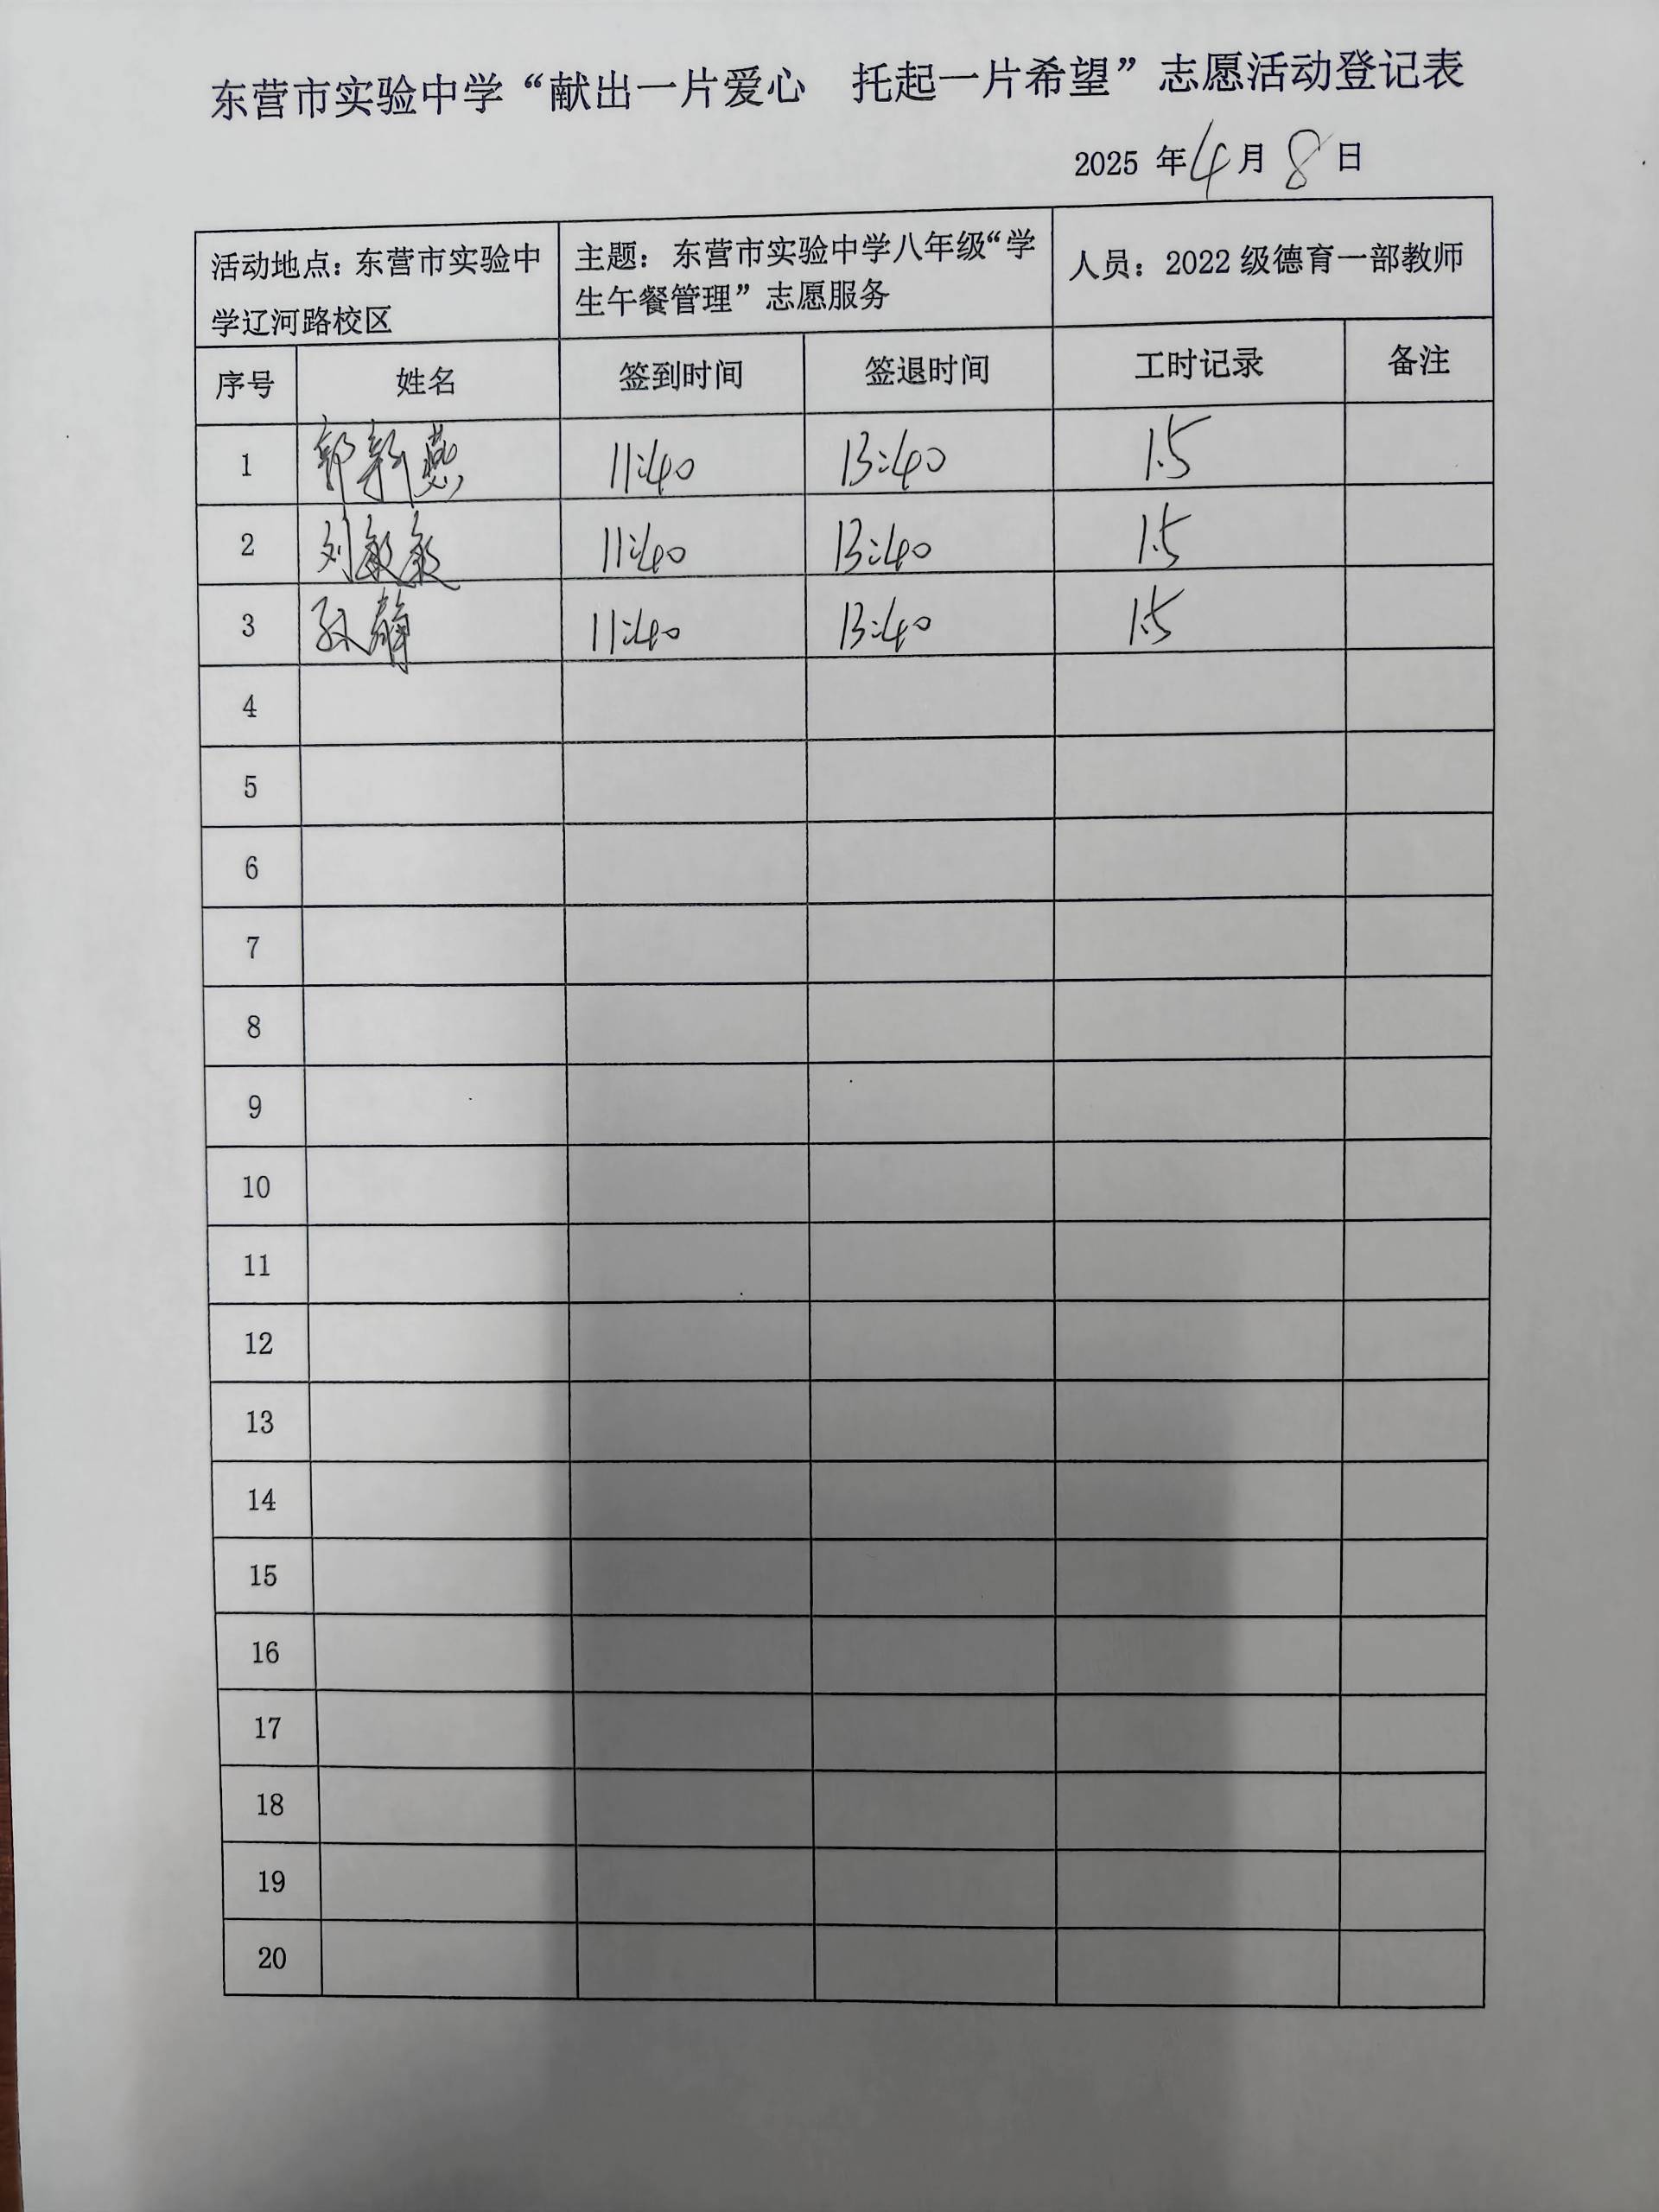 东营市实验中学“献出一片爱心　托起一片希望”志愿活动登记表
2025 年4月8日
活动地点：东营市实验中学辽河路校区 主题：东营市实验中学八年级“学生午餐管理”志愿服务 人员：2022 级德育一部教师
序号 姓名 签到时间 签退时间 工时记录 备注
1 郭新燕 11:40 13:40 1.5
2 刘敏敏 11:40 13:40 1.5
3 孙静 11:40 13:40 1.5
4
5
6
7
8
9
10
11
12
13
14
15
16
17
18
19
20